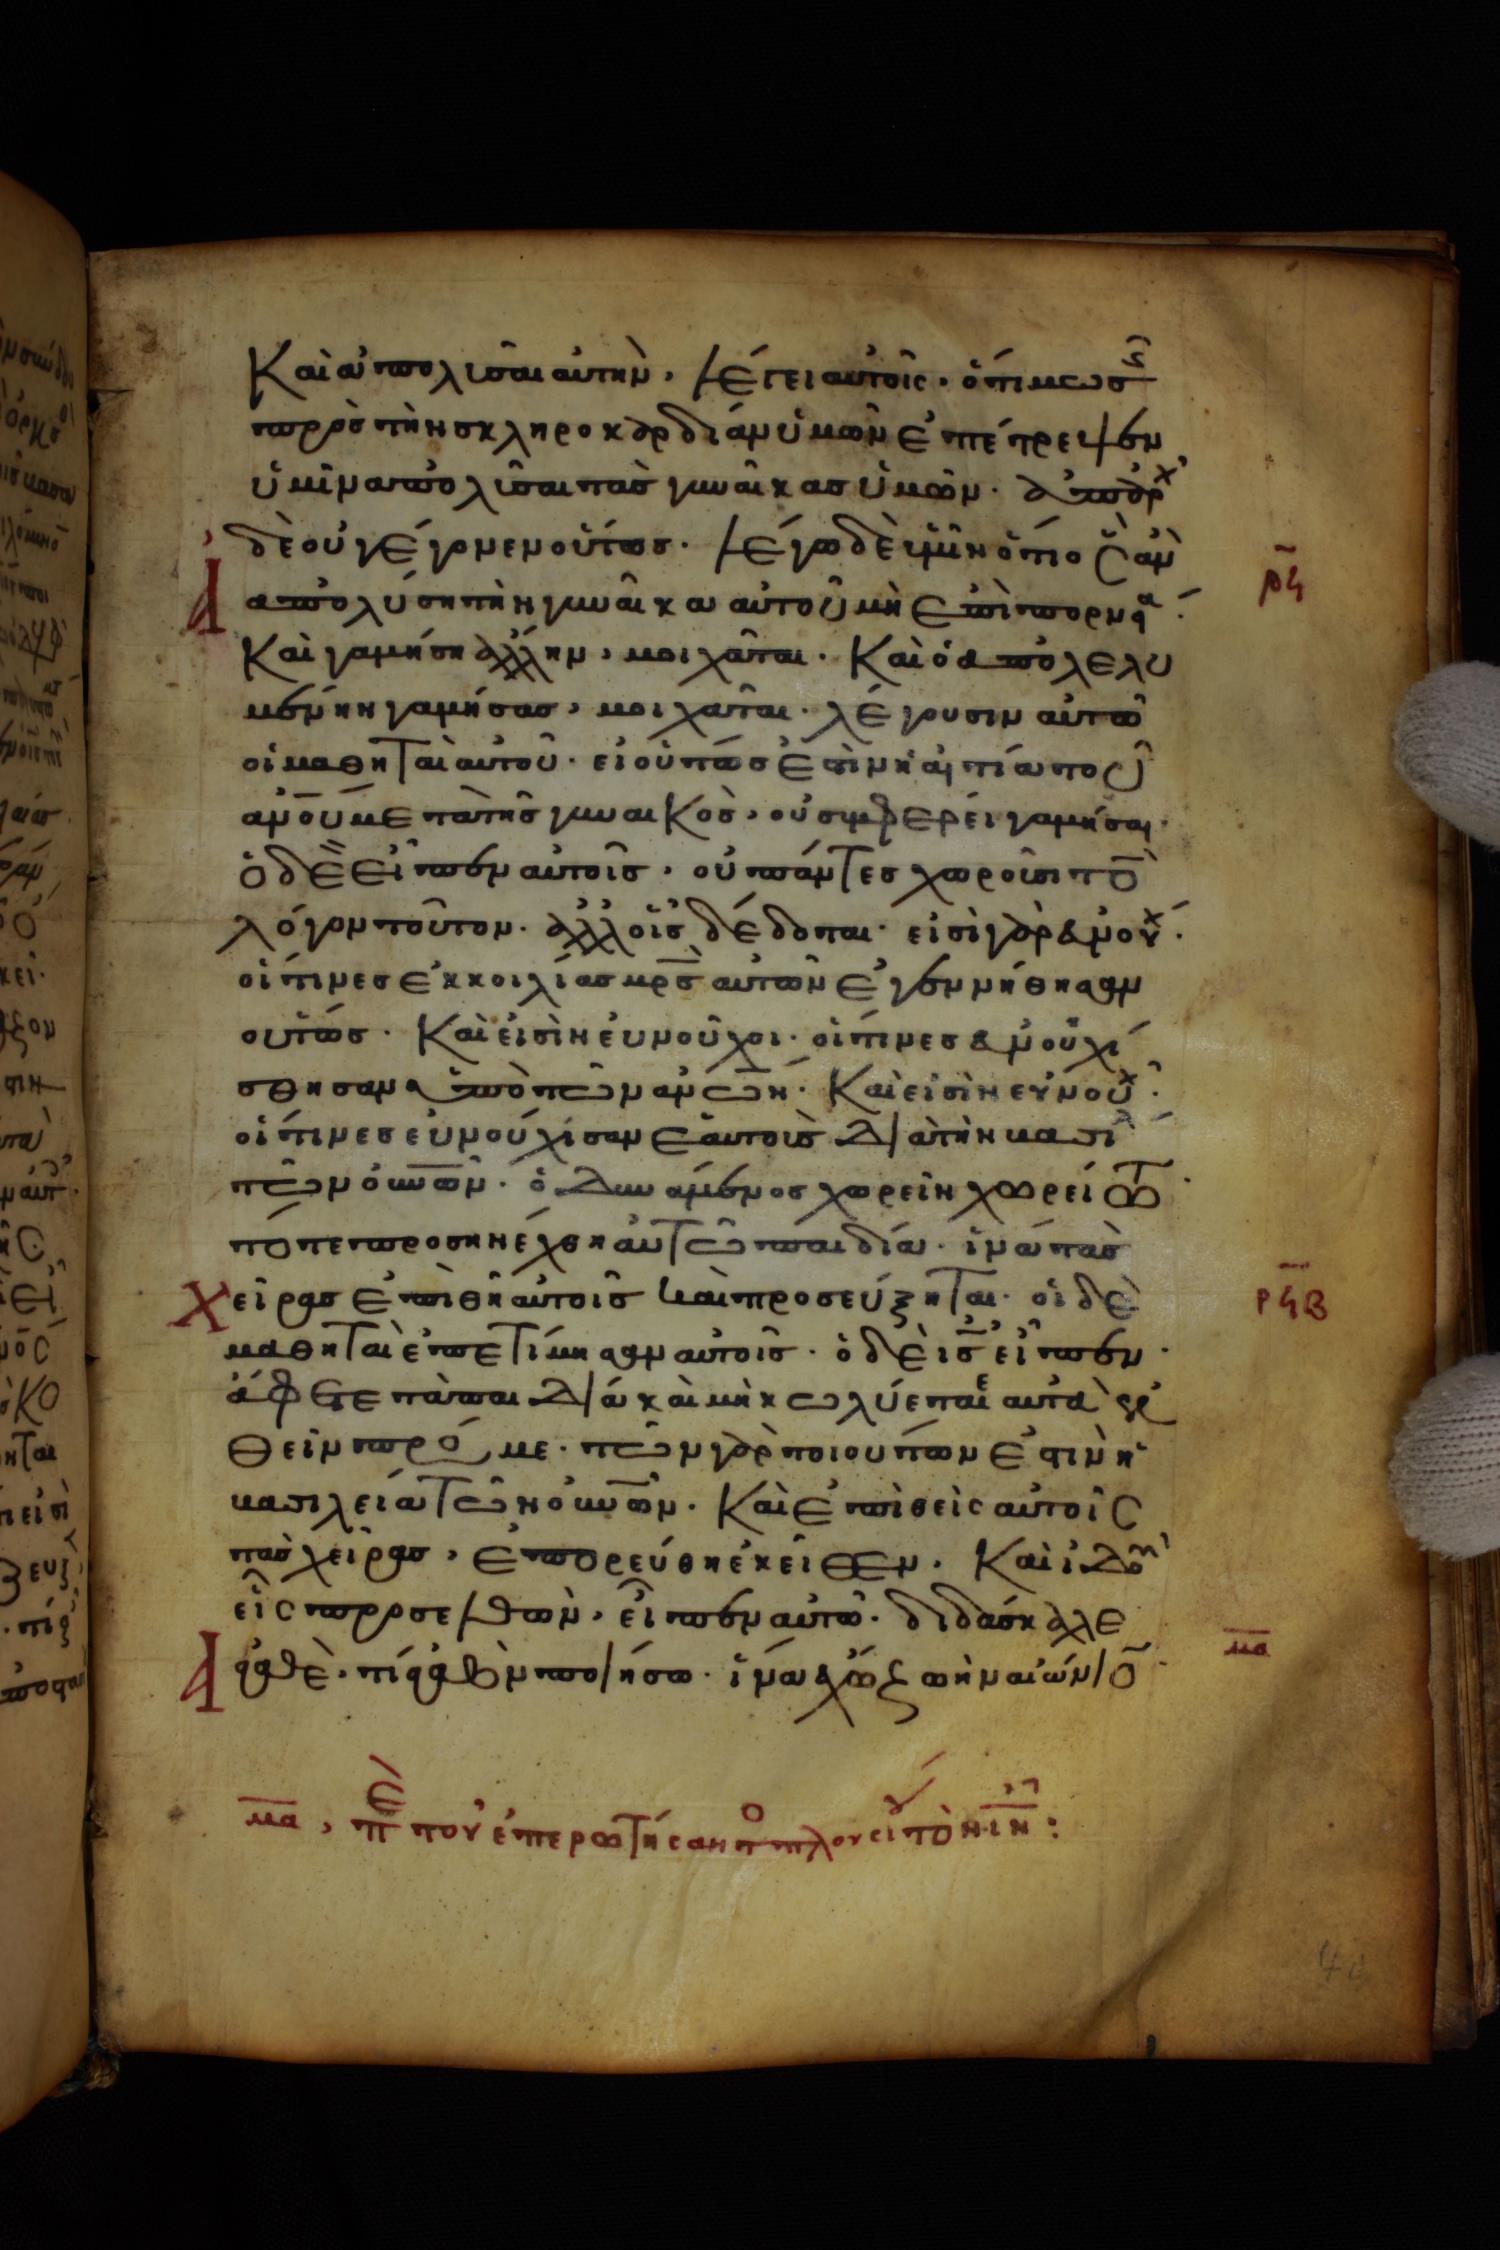 Καὶ ἀπολῦσαι αὐτὴν, λέγει αὐτοῖς· ὅτι μωσῆς
πρὸς τὴν σκληροκαρδίαν ὑμῶν ἐπέτρεψεν
ὑμῖν ἀπολῦσαι τὰς γυναῖκας ὑμῶν· ἀπ ἀρχ
δὲ οὐ γέγονεν οὕτως· λέγω δὲ ὑμῖν ὅτι ὃς ἂν
ρϟ
ἀπολύση τὴν γυναῖκα αὐτοῦ μὴ ἐπὶ πορνεία·
Καὶ γαμήση ἄλλην, μοιχᾶται· Καὶ ὁ ἀπολελυ
μένην γαμήσας, μοιχᾶται· λέγουσιν αὐτῶ
οἱ μαθηταὶ αὐτοῦ· εἰ οὕτως ἐστὶν ἡ αἰτία τοῦ
ἀνου μετὰ τῆς γυναικὸς, οὐ συμφέρει γαμήσαι·
ὁ δὲ εἶπεν αὐτοῖς, οὐ πάντες χωροῦσι τὸ
λόγον τοῦτον· ἀλλ οἷς δέδοται· εἰσὶ γὰρ εὐνουχ·
οἵτινες ἐκ κοιλίας μρς αὐτῶν ἐγεννήθησαν
οὕτως· Καὶ εἰσὶν εὐνοῦχοι· οἵτινες εὐνουχί
σθησαν ἀπὸ τῶν ἀνων· Καὶ εἰσὶν εὐνουχ·
οἵτινες εὐνούχισαν ἑαυτοὺς διὰ τὴν βασιλ
τῶν οὐνων· ὁ δυνάμενος χωρεῖν χωρείτω·
τότε προσηνέχθη αὐτῶ παιδία· ἵνα τὰς
χεῖρας ἐπιθῆ αὐτοῖς καὶ προσεύξηται· οἱ δὲ
ρϟβ
μαθηταὶ ἐπετίμησαν αὐτοῖς· ὁ δὲ ις εἶπεν·
ἄφετε τὰ παιδία καὶ μὴ κωλύεται αὐτὰ ἐλ
θεῖν πρός με· τῶν γὰρ τοιούτων ἐστὶν ἡ
βασιλεία τῶν οὐνων· Καὶ ἐπιθεὶς αὐτοῖς
τὰς χεῖρας, ἐπορεύθη ἐκεῖθεν· Καὶ ἰδοὺ
εἷς προσελθὼν, εἶπεν αὐτῶ· διδάσκαλε
ἀγαθὲ· τί ἀγαθὸν ποιήσω· ἵνα ἔχω ζωὴν αἰώνιο·
μα
μα, πε του ἐπερωτήσαντο πλουσίου τὸν ιν: